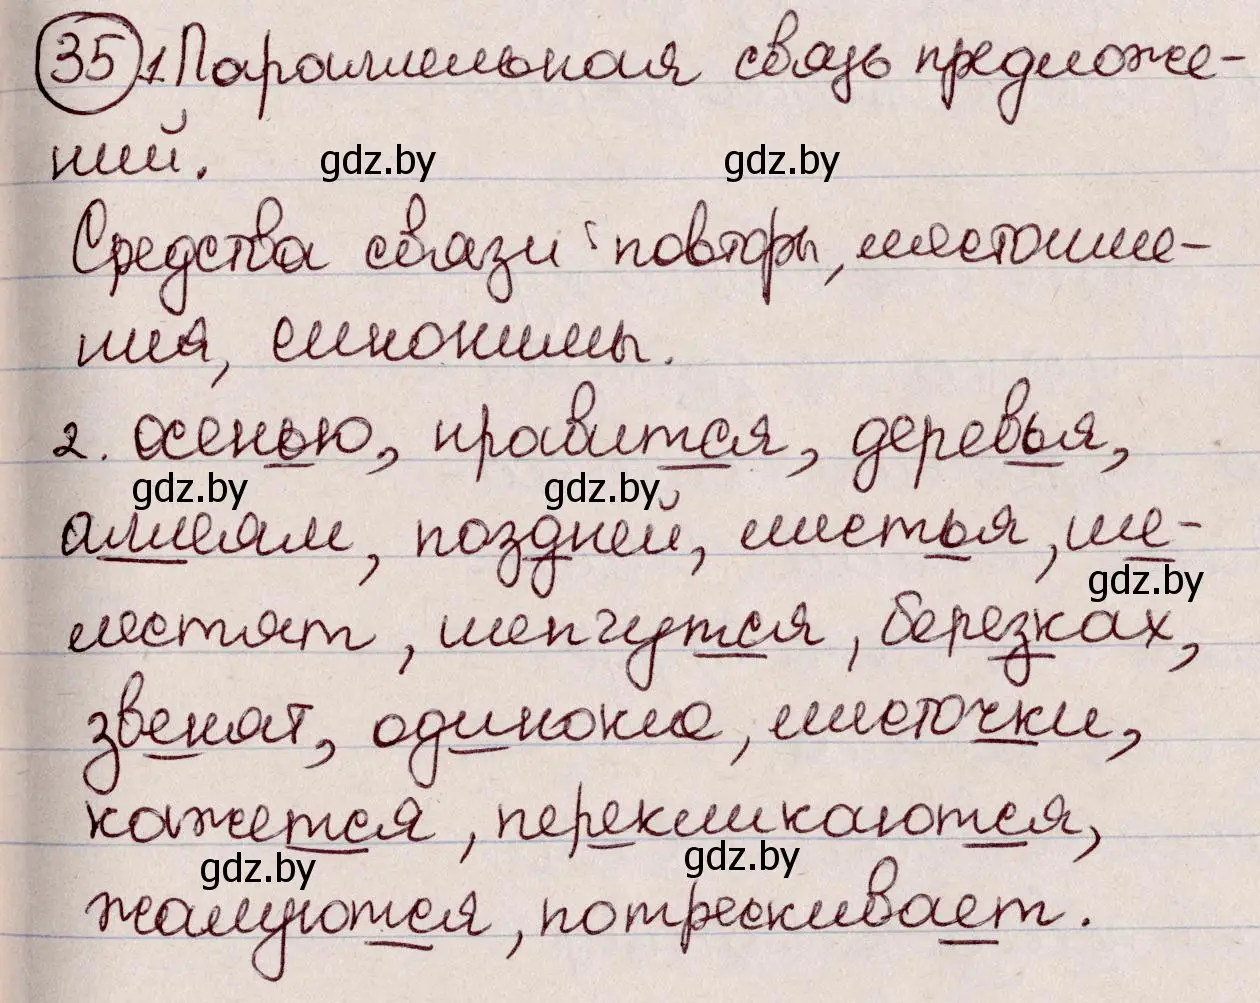 35 1. Параллельная связь предложе-
ний.
gdz.by gdz.by
Средства связи: повторы, местоиме-
ния, синонимы.
2. осенью, нравится, деревья,
gdz.by gdz.by
аллеям, поздней, листья, ше-
gdz.by
лестят, шепчутся, березках,
звенят, одиноко, листочки,
кажется, перекликаются,
gdz.by gdz.by
жалуются, потрескивает.